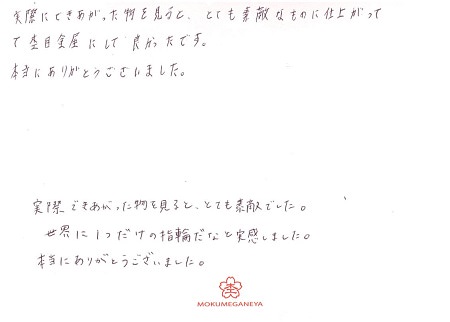 実際にできあがった物を見ると、とても素敵なものに仕上がって
て杢目金屋にして良かったです。
本当にありがとうございました。
実際できあがった物を見ると、とても素敵でした。
世界に1つだけの指輪だなと実感しました。
本当にありがとうございました。
MOKUMEGANEYA